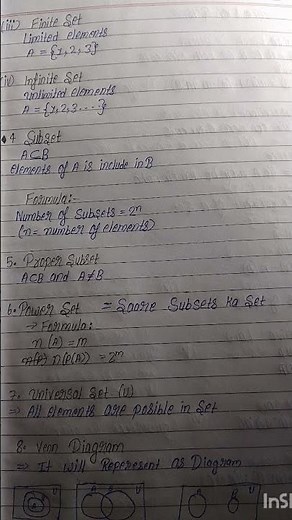 (iii) Finite Set
Limited elements
A = {1, 2, 3}
(iv) Infinite Set
Unlimited elements
A = {1, 2, 3 ....}
4. Subset
A⊂B
Elements of A is include in B
Formula:-
Number of Subsets = 2ⁿ
(n = number of elements)
5. Proper Subset
A⊂B and A≠B
6. Power Set = Saare Subsets ka Set
→ Formula:
n(A) = m
n(P(A)) = 2ᵐ
7. Universal Set (U)
⇒ All elements are posible in Set
8. Venn Diagram
⇒ It will Represent as Diagram
InSh